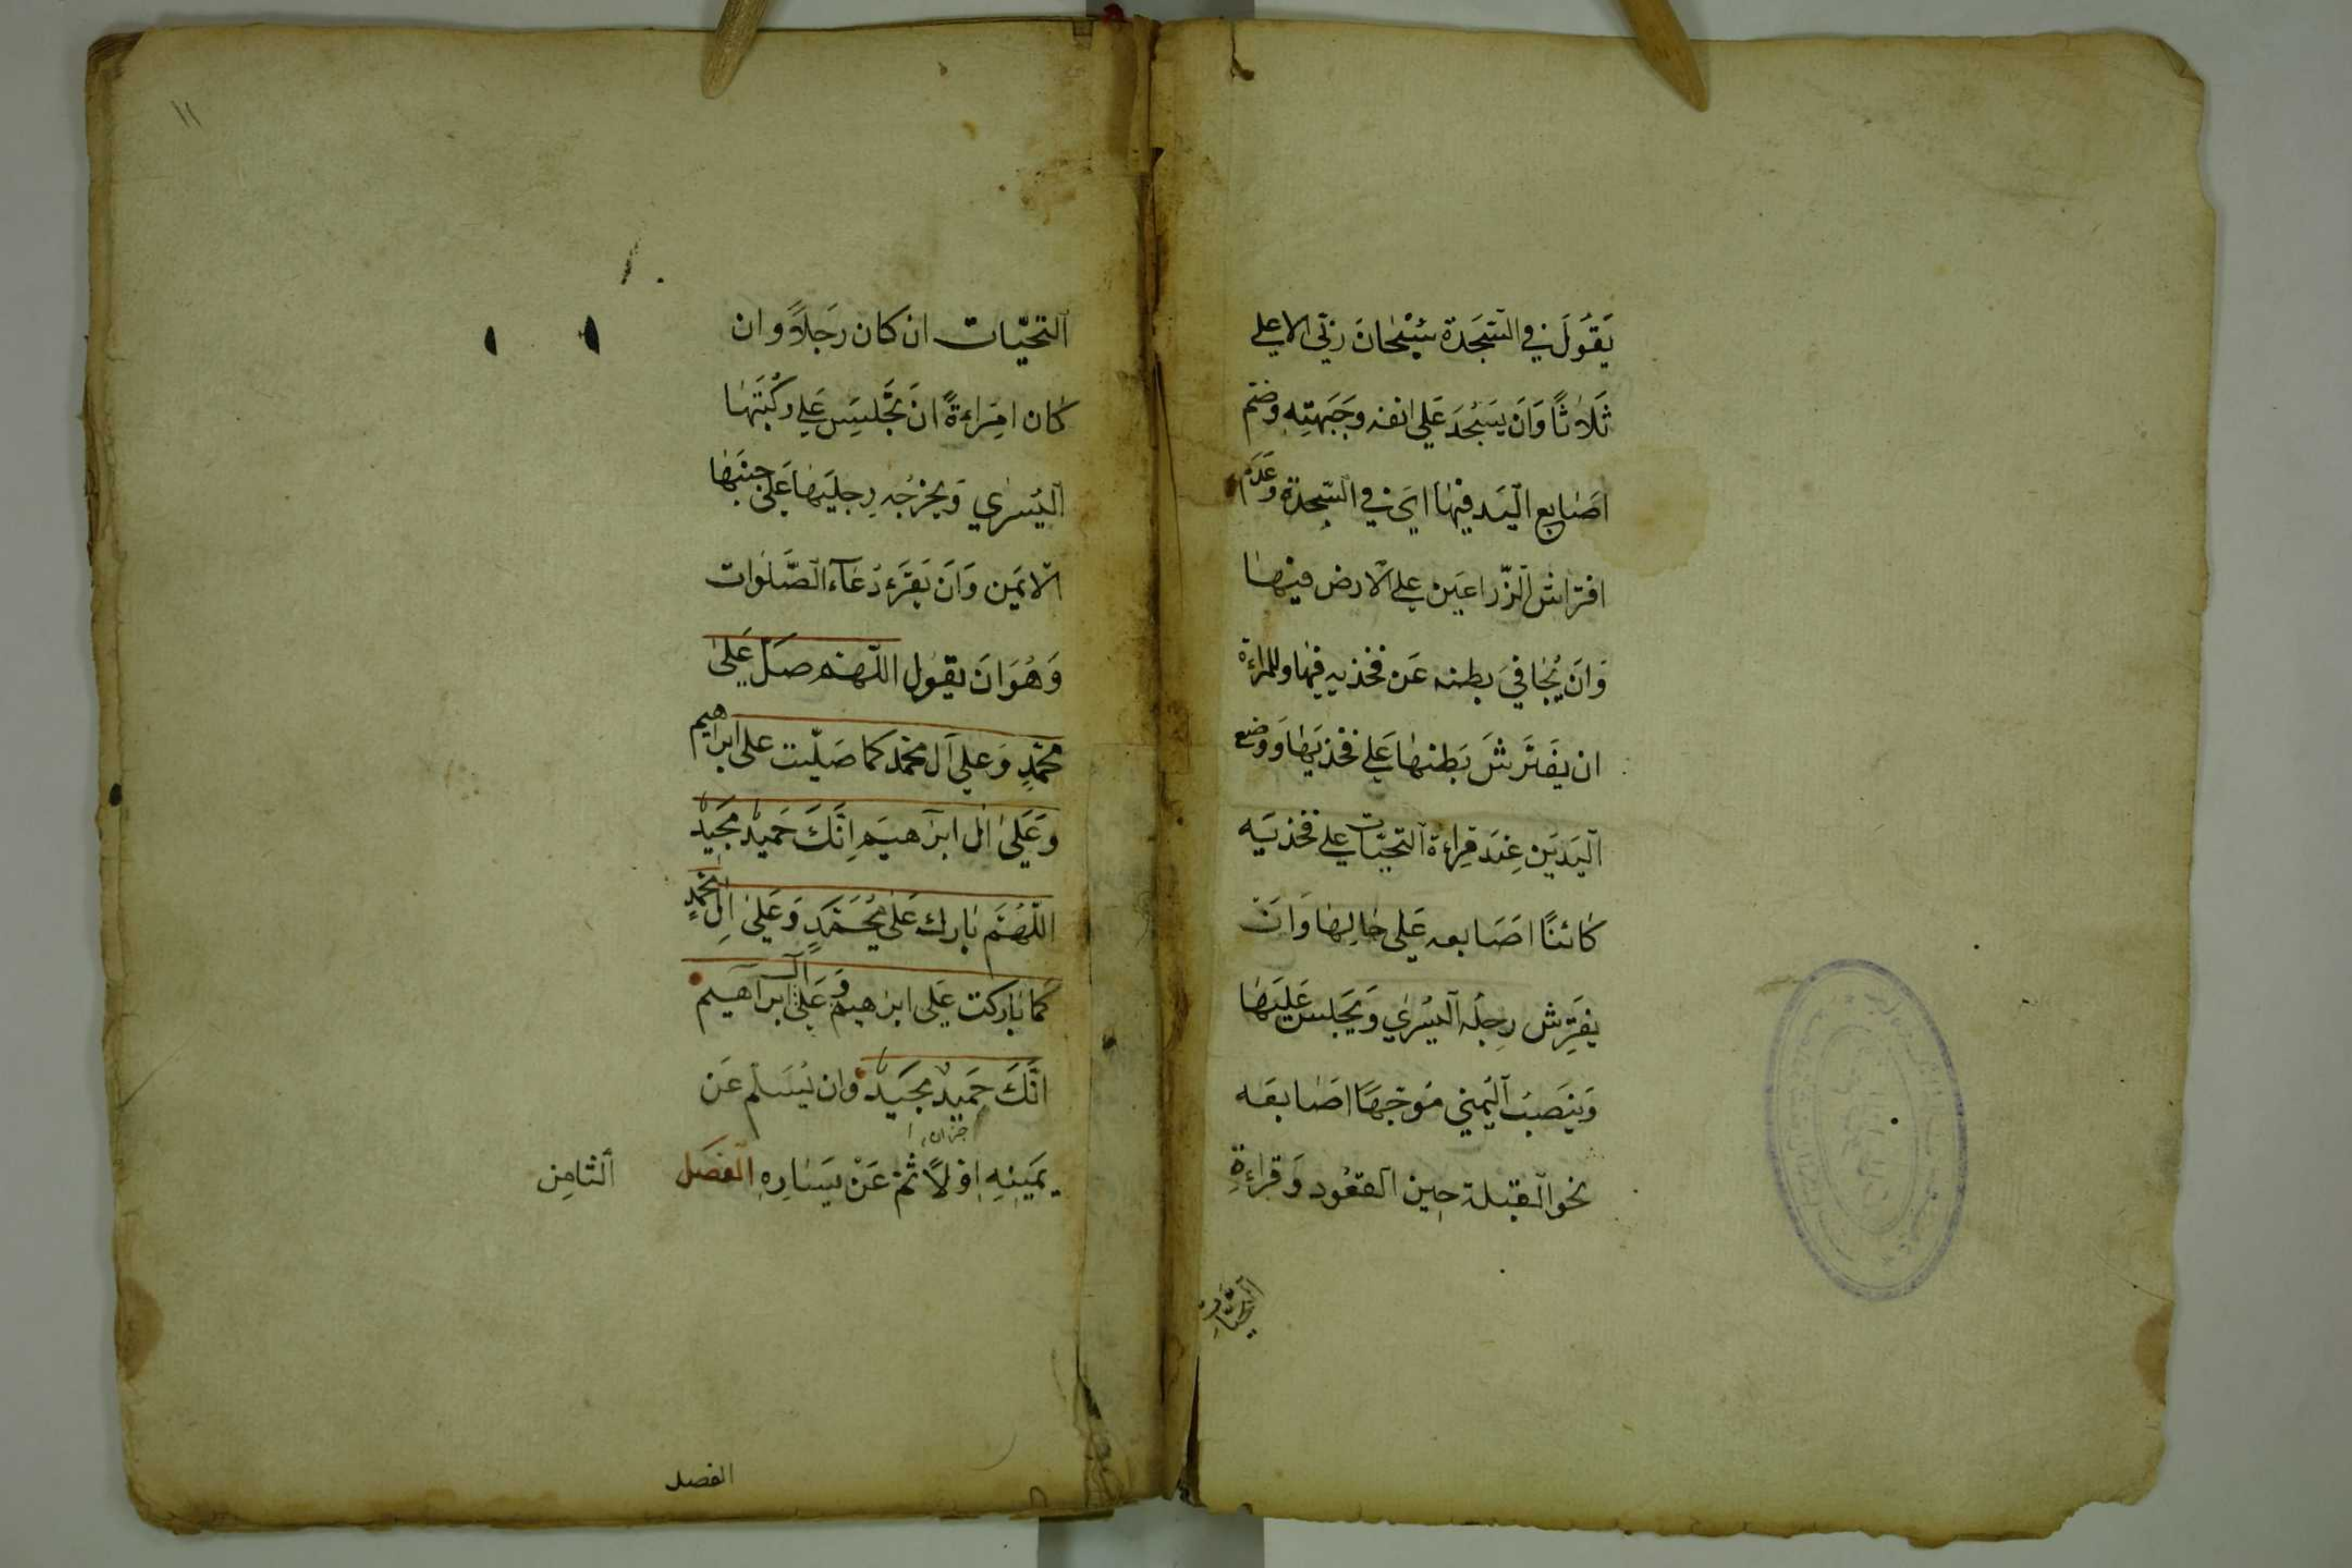 يَقُولَ في السَّجَدة سُبْحَانَ رَبّي الاعلي
ثَلاثًا وَانَ يَسَجُدَ عَلي انفه وجَبَهتِه وضَم
اصَابع اليَد فيهَا اىَ في السَّجدة وعَدَم
افتراش الذّراعَين علي الارض فيهَا
وَانَ يُجَافيَ بطنه عَن فخذيه فيهَا وللمراءة
ان يَفتَرشَ بَطنهَا عَلي فخذيَهَا وَوضع
اليَدَيَن عِنَد قِراءة التحيّات علي فخذيَه
كائنًا اصَابعه عَلي حَالِهَا وَانَ
يفَتِرش رِجلَه اليُسرَي وَيَجَلسَ عَلَيَهَا
وَيَنصَبُ اليُمني مُوَجّهًا اصَابعَه
نحو القبلة حين القعُود وَقراءةِ
التحيّات
التحيّات ان كان رَجَلاً وان
كان امَراءةً انَ تَجَلسَ عَلي رُكبَتَهَا
اليُسَري وَيخرُجُ رِجلَيَهَا عَلى جنبَهَا
الايمَن وَانَ يَقَرَء دُعَآء الصَّلوات
وَهُوَ انَ يقوُل اللّهُم صَلّ عَلَى
محَمّدٍ وَعلي آل محمّد كما صَلّيت علي ابراهيم
وَعَلَى ال ابرَاهيَم اِنَّكَ حَميدٌ مَجيَدٌ
اللّهُمَّ بَارك عَلى مُحَمَّدٍ وَعَلَى الِ محمّدٍ
كمَا بَاركت عَلى ابرَاهيم وَعَلى ال ابرَاهيم
انَّكَ حَميدٌ مجَيَدٌ وان يُسَلّم عَن
يمَينِهِ اوّلاً ثمّ عَنْ يَسَارِهِ الفصَل الثامِن
الفصل
١١